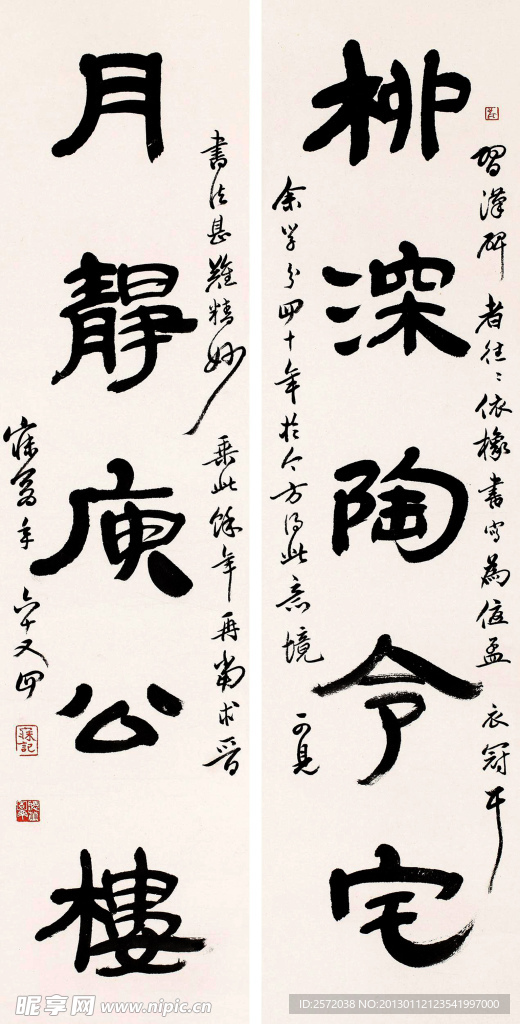 柳深陶令宅
習漢碑者往往依樣書寫為優孟衣冠耳
余學分四十年於今方得此意境可見
月靜庾公樓
書法甚難精妙乘此餘年再當求晉
六十又四
昵享网 www.nipic.cn
ID:2572038 NO:20130112123541997000